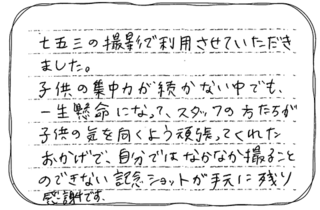 七五三の撮影で利用させていただき
ました。
子供の集中力が続かない中でも、
一生懸命になって、スタッフの方たちが
子供の気を向くよう頑張ってくれた
おかげで、自分ではなかなか撮ること
のできない記念ショットが手元に残り
感謝です。